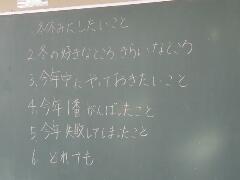 1.冬休みにしたいこと
2.冬の好きなところ きらいなところ
3.今年中にやっておきたいこと
4.今年1番がんばったこと
5.今年失敗してしまったこと
6.どれでも